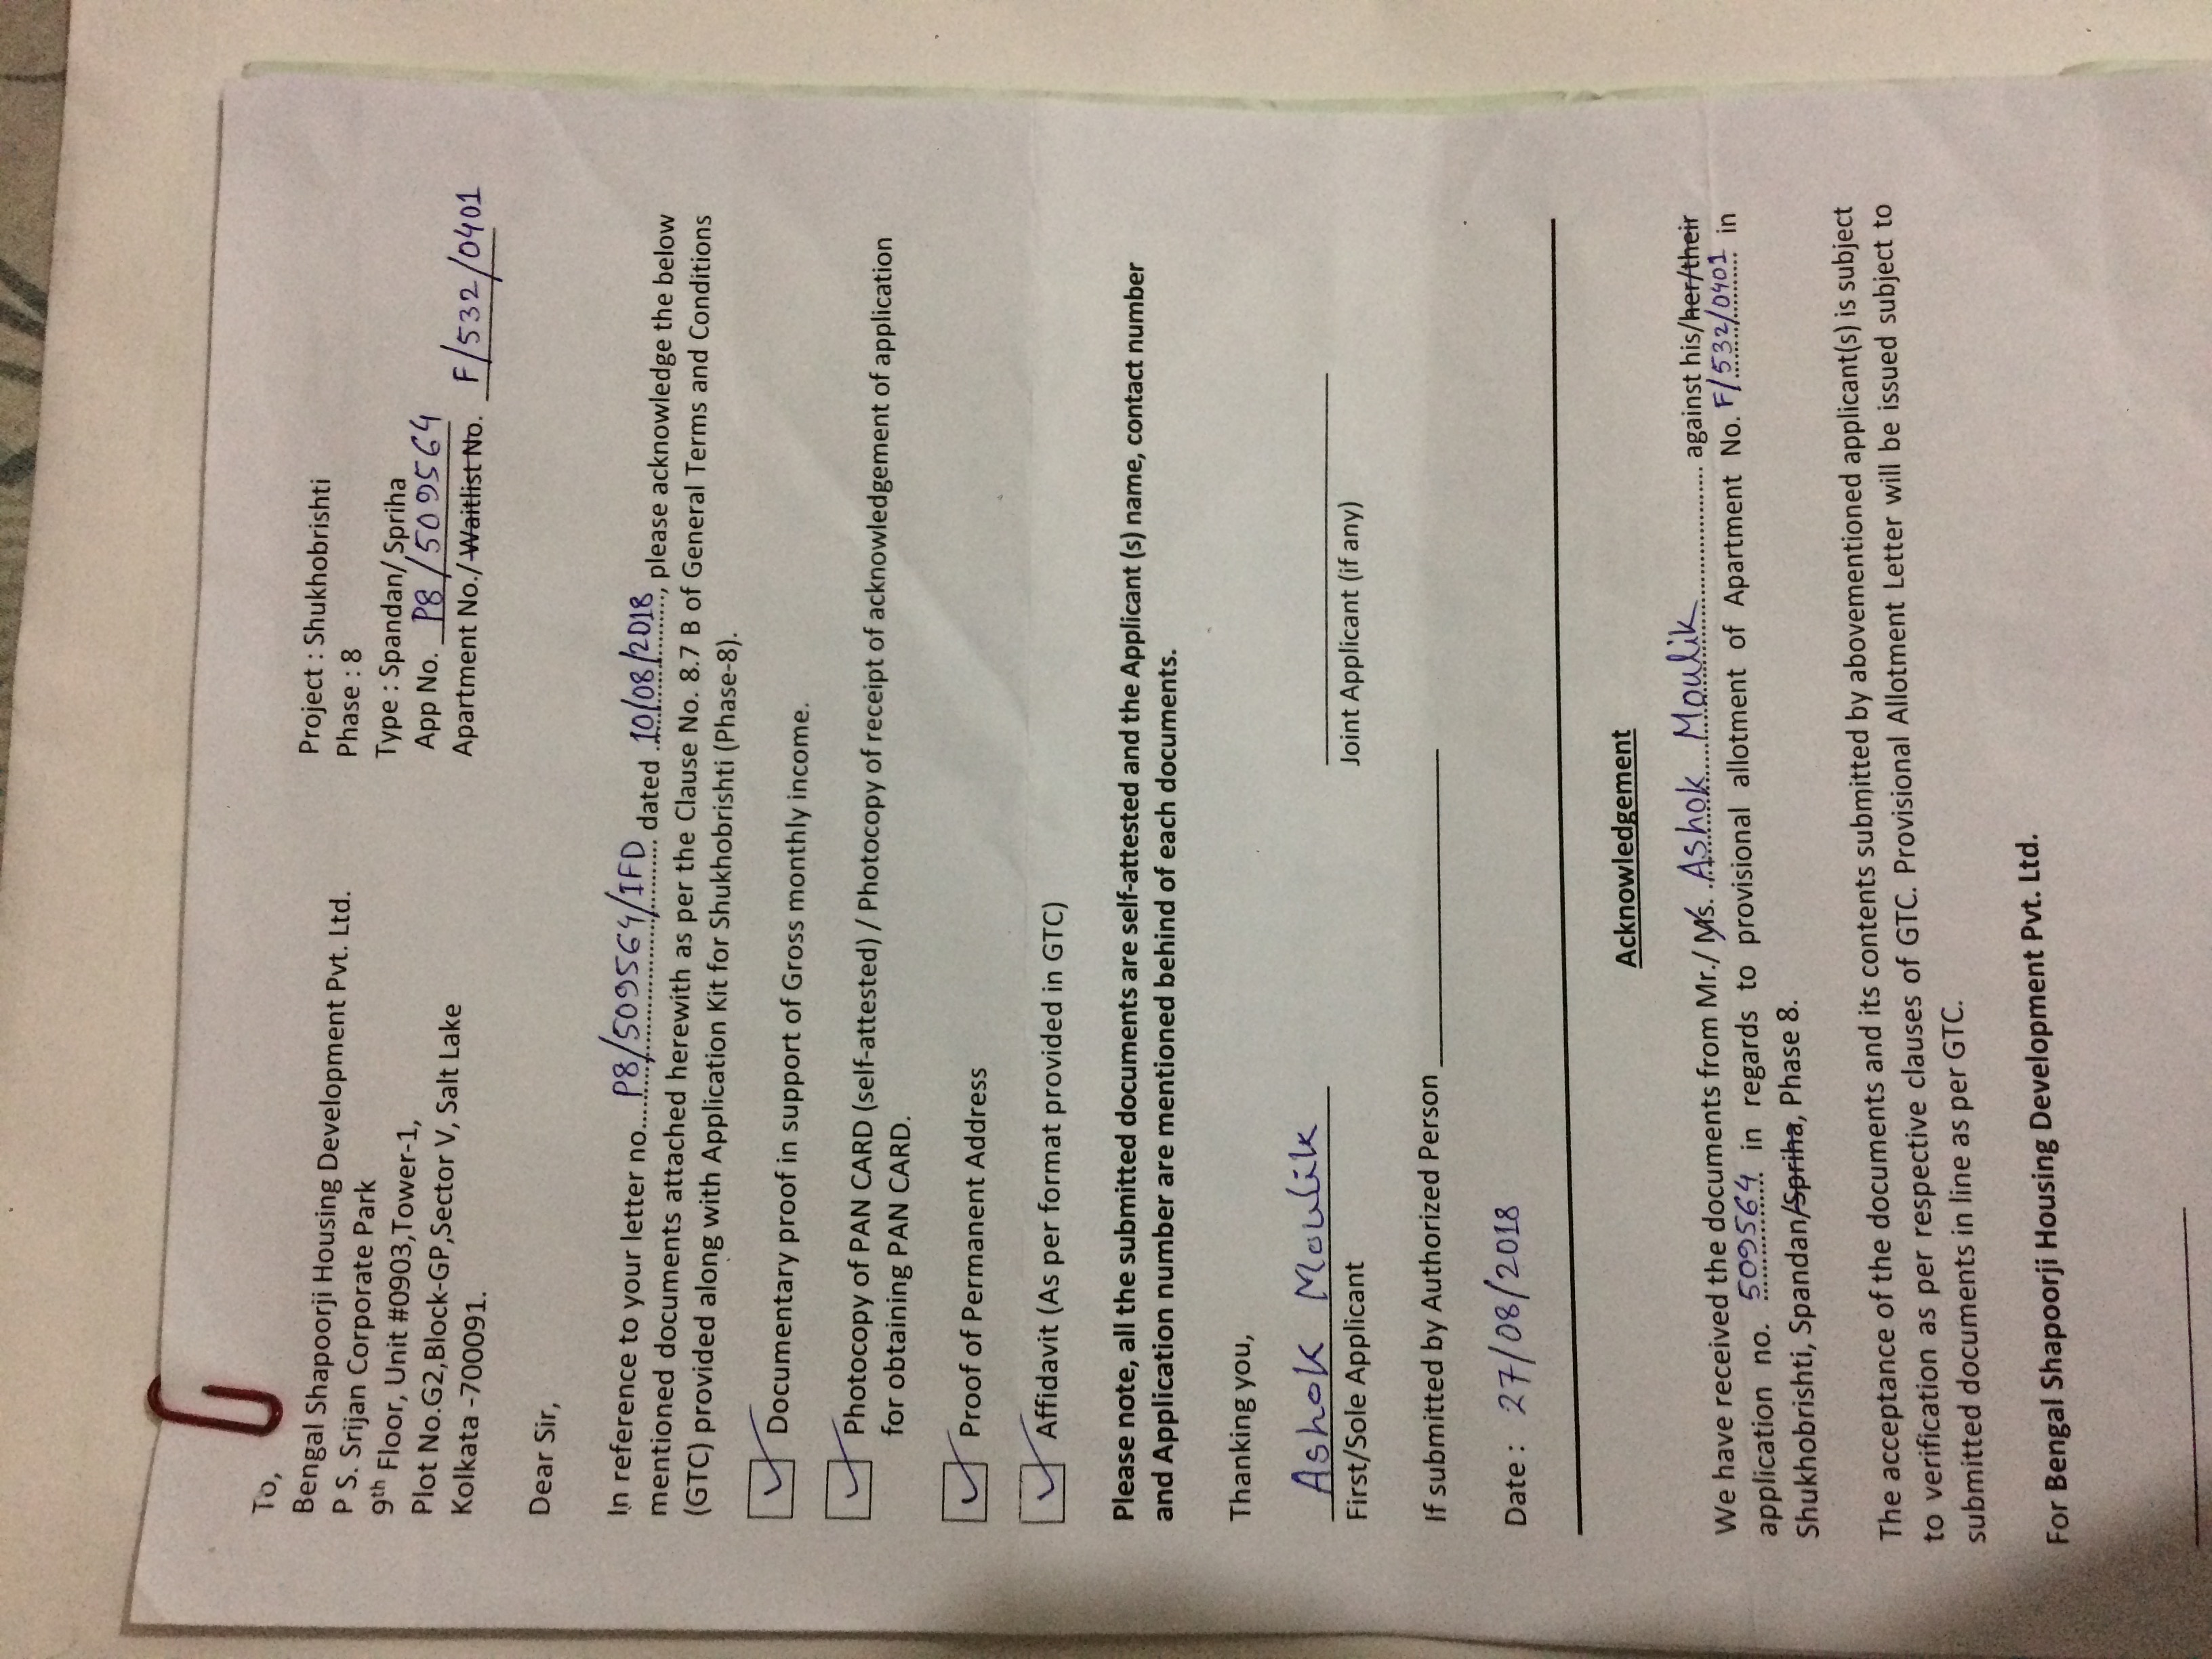 To,
Bengal Shapoorji Housing Development Pvt. Ltd.
P S. Srijan Corporate Park
9th Floor, Unit #0903,Tower-1,
Plot No.G2,Block-GP,Sector V, Salt Lake
Kolkata -700091.
Project : Shukhobrishti
Phase : 8
Type : Spandan/ Spriha
App No. P8/509564
Apartment No./ Waitlist No. F/532/0401
Dear Sir,
In reference to your letter no.....P8/509564/IFD dated 10/08/2018, please acknowledge the below
mentioned documents attached herewith as per the Clause No. 8.7 B of General Terms and Conditions
(GTC) provided along with Application Kit for Shukhobrishti (Phase-8).
Documentary proof in support of Gross monthly income.
Photocopy of PAN CARD (self-attested) / Photocopy of receipt of acknowledgement of application
for obtaining PAN CARD.
Proof of Permanent Address
Affidavit (As per format provided in GTC)
Please note, all the submitted documents are self-attested and the Applicant (s) name, contact number
and Application number are mentioned behind of each documents.
Thanking you,
Ashok Moulik
First/Sole Applicant
Joint Applicant (if any)
If submitted by Authorized Person
Date : 27/08/2018
Acknowledgement
We have received the documents from Mr./ M/s. Ashok Moulik against his/her/their
application no. 509564 in regards to provisional allotment of Apartment No. F/532/0401 in
Shukhobrishti, Spandan/Spriha, Phase 8.
The acceptance of the documents and its contents submitted by abovementioned applicant(s) is subject
to verification as per respective clauses of GTC. Provisional Allotment Letter will be issued subject to
submitted documents in line as per GTC.
For Bengal Shapoorji Housing Development Pvt. Ltd.